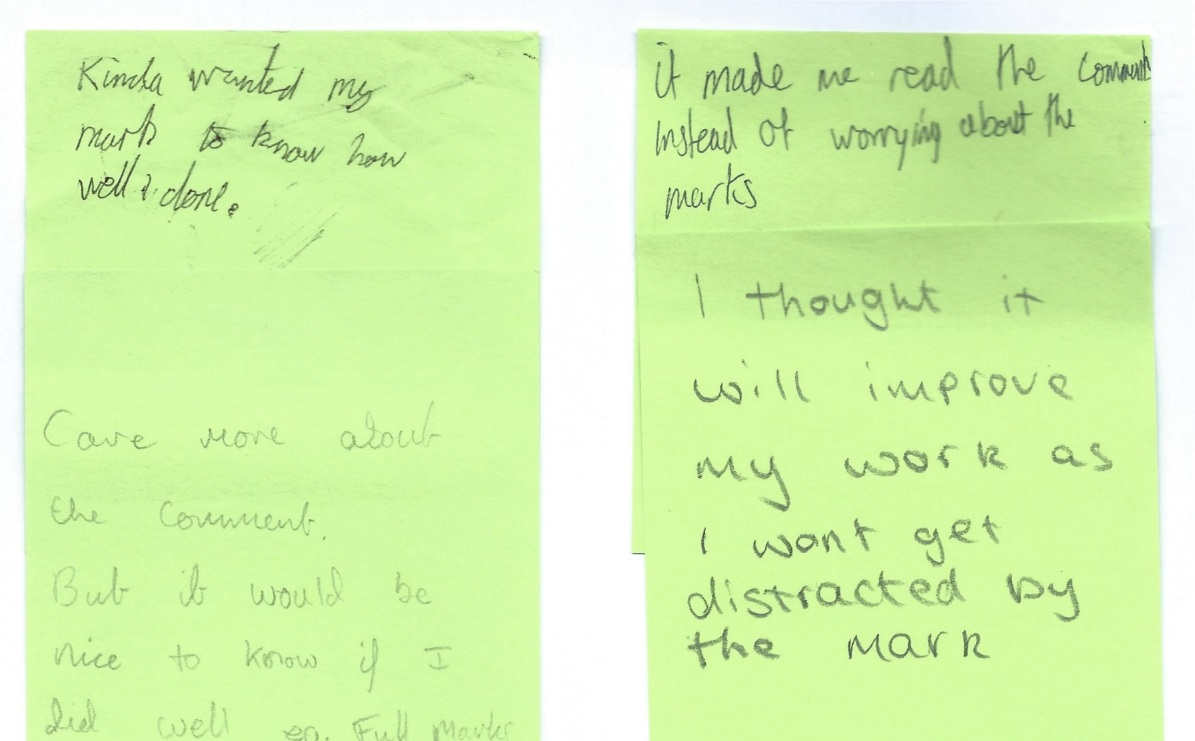 Kinda wanted my
mark to know how
well i done.
Care more about
the comment.
But it would be
nice to know if I
did well eg. Full marks
it made me read the comment
instead of worrying about the
marks
I thought it
will improve
my work as
I wont get
distracted by
the mark